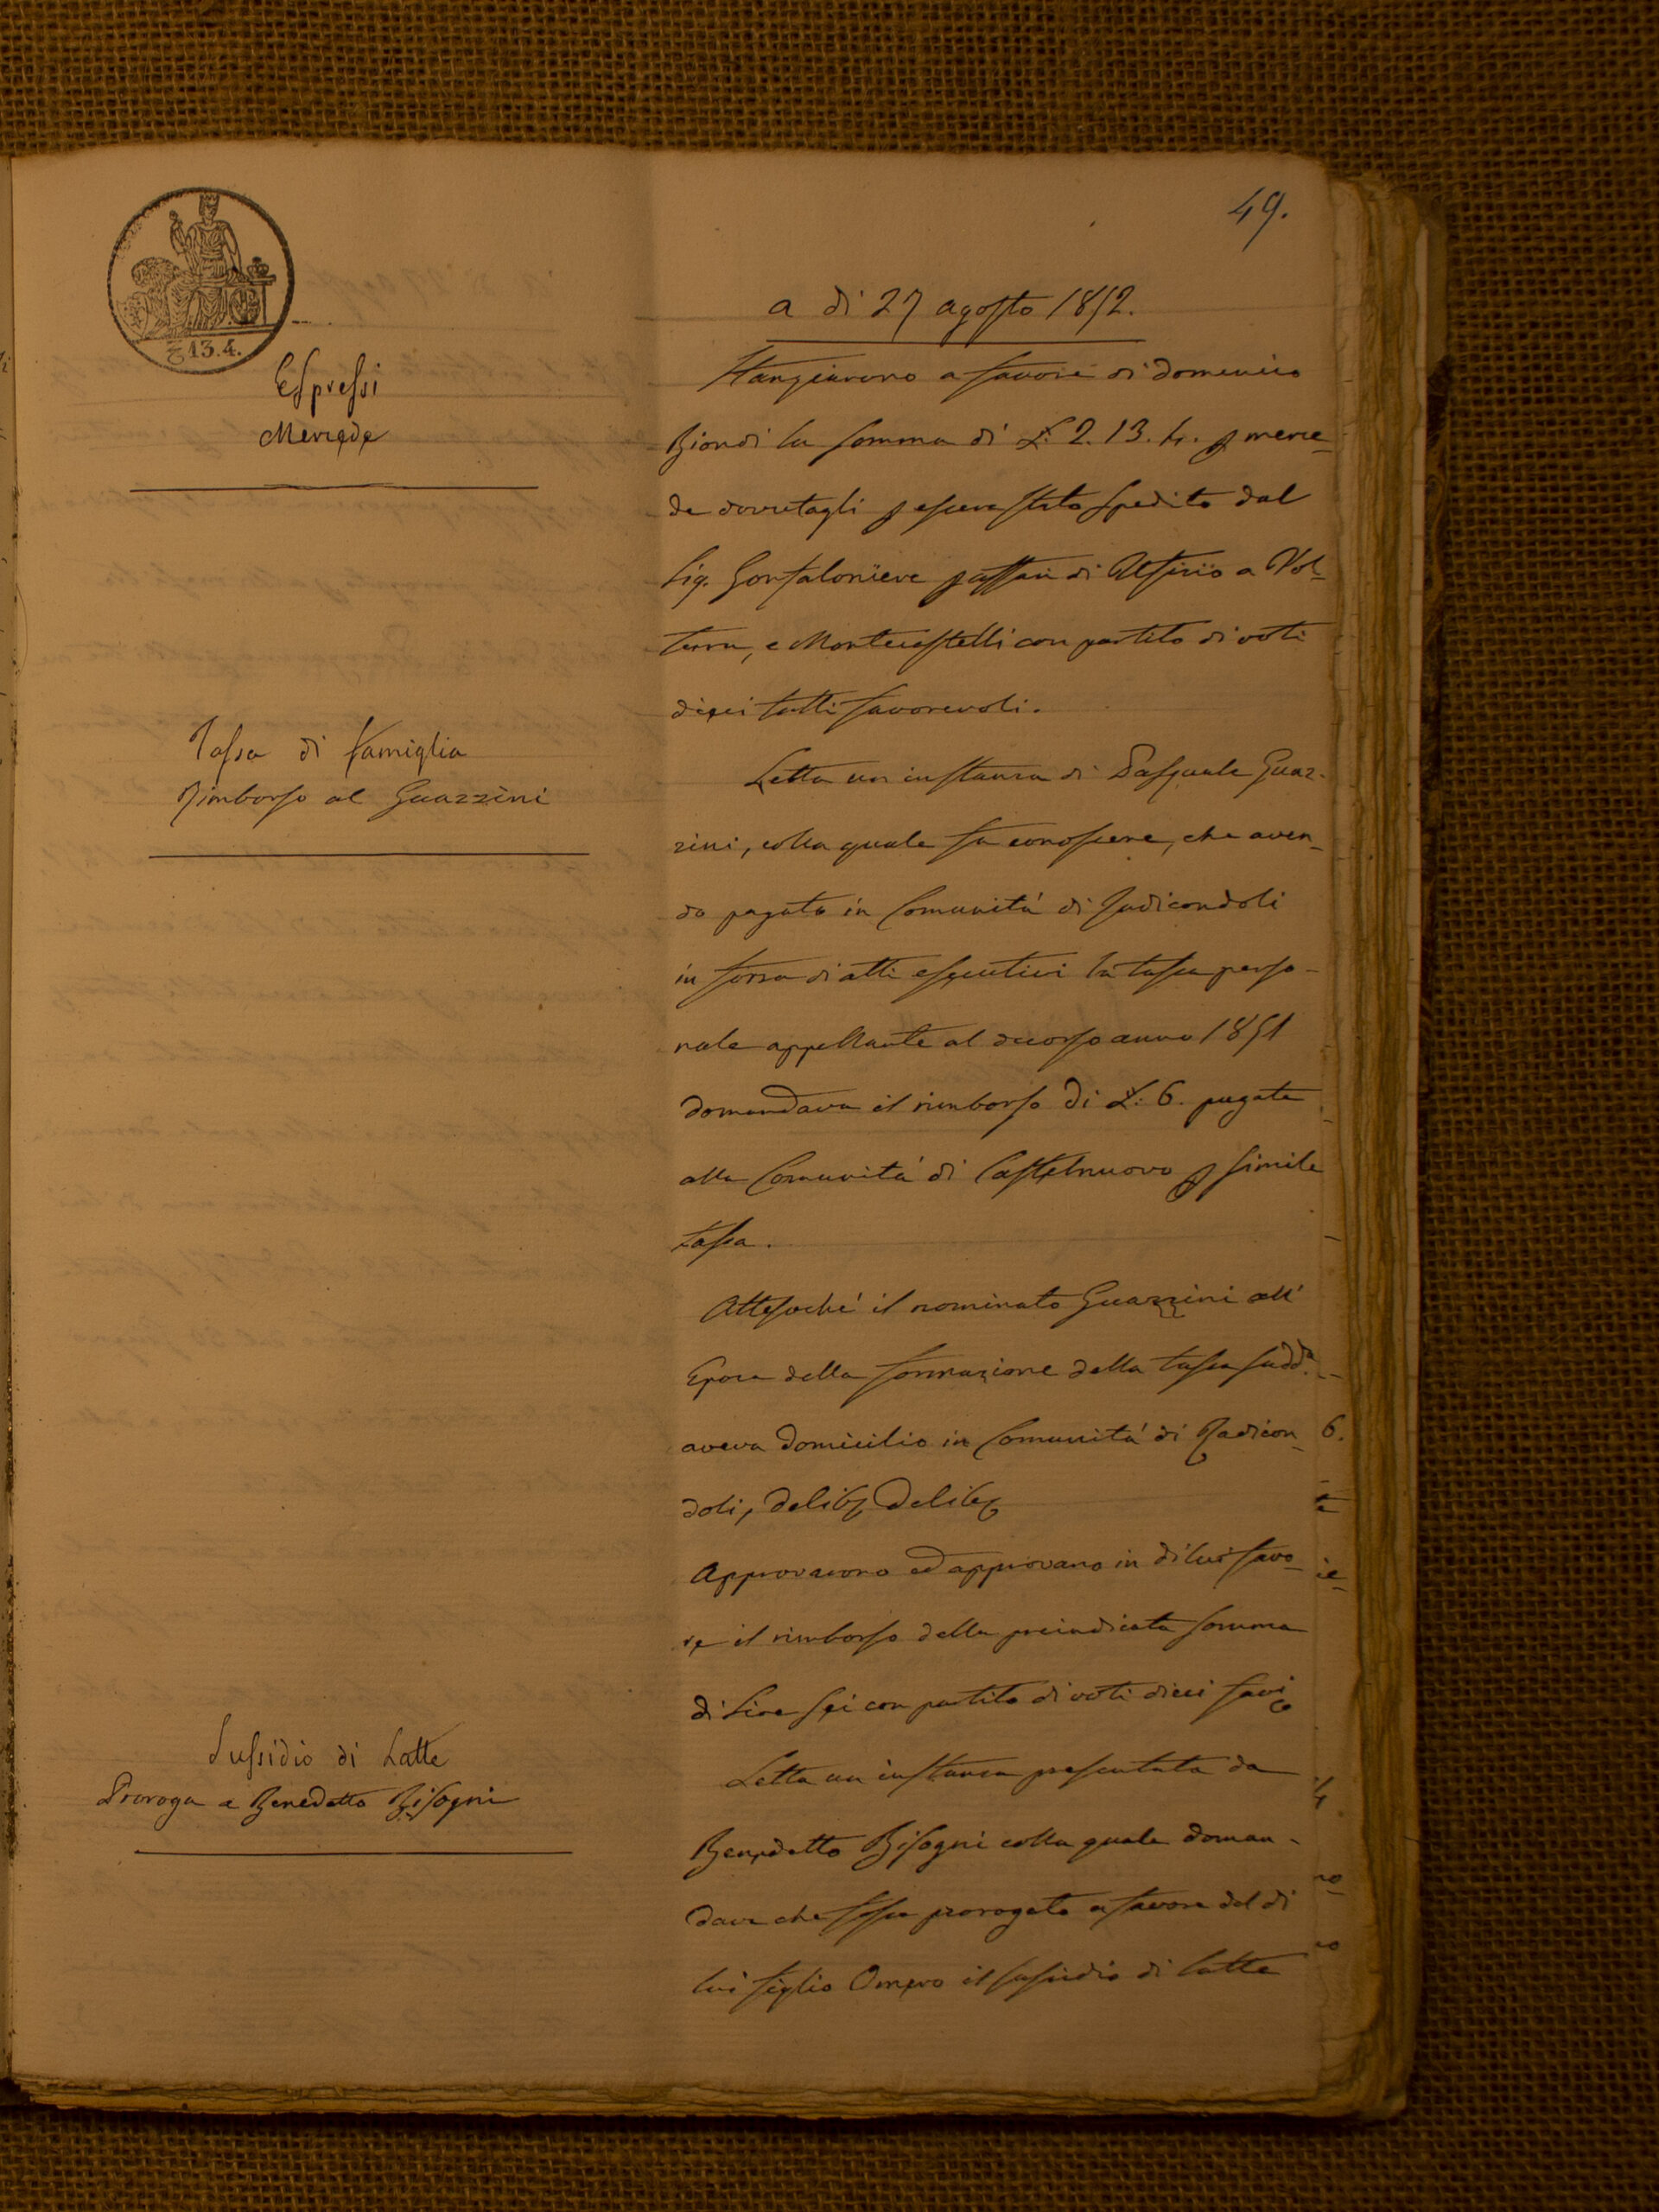 49.
13.4.
a dì 27 agosto 1852.
Espressi
Mercede
Stanziarono a favore di Domenico
Biondi la somma di £. 2. 13. 4. p merce-
de dovutagli p essere stato spedito dal
Sig. Gonfaloniere p affari di Ufizio a Vol-
terra, e Montecastelli con partito di voti
dieci tutti favorevoli.
Tassa di famiglia
Rimborso al Guazzini
Letta un instanza di Pasquale Guaz-
zini, colla quale fa conoscere, che aven-
do pagato in Comunità di Radicondoli
in forza di atti esecutivi la tassa perso-
nale appellante al decorso anno 1851
domandava il rimborso di £. 6. pagate
alla Comunità di Castelnuovo p simile
tassa.
Attesochè il nominato Guazzini all'
Epoca della formazione della tassa sudd.ª
aveva domicilio in Comunità di Radicon-
doli, Delib Delib
Approvarono ed approvano in di lui favo-
re il rimborso della preindicata somma
di Lire sei con partito di voti dieci favi
Sussidio di Latte
Proroga a Benedetto Bisogni
Letta un instanza presentata da
Benedetto Bisogni colla quale doman-
dava che fosse prorogato a favore del di
lui figlio Omero il sussidio di latte